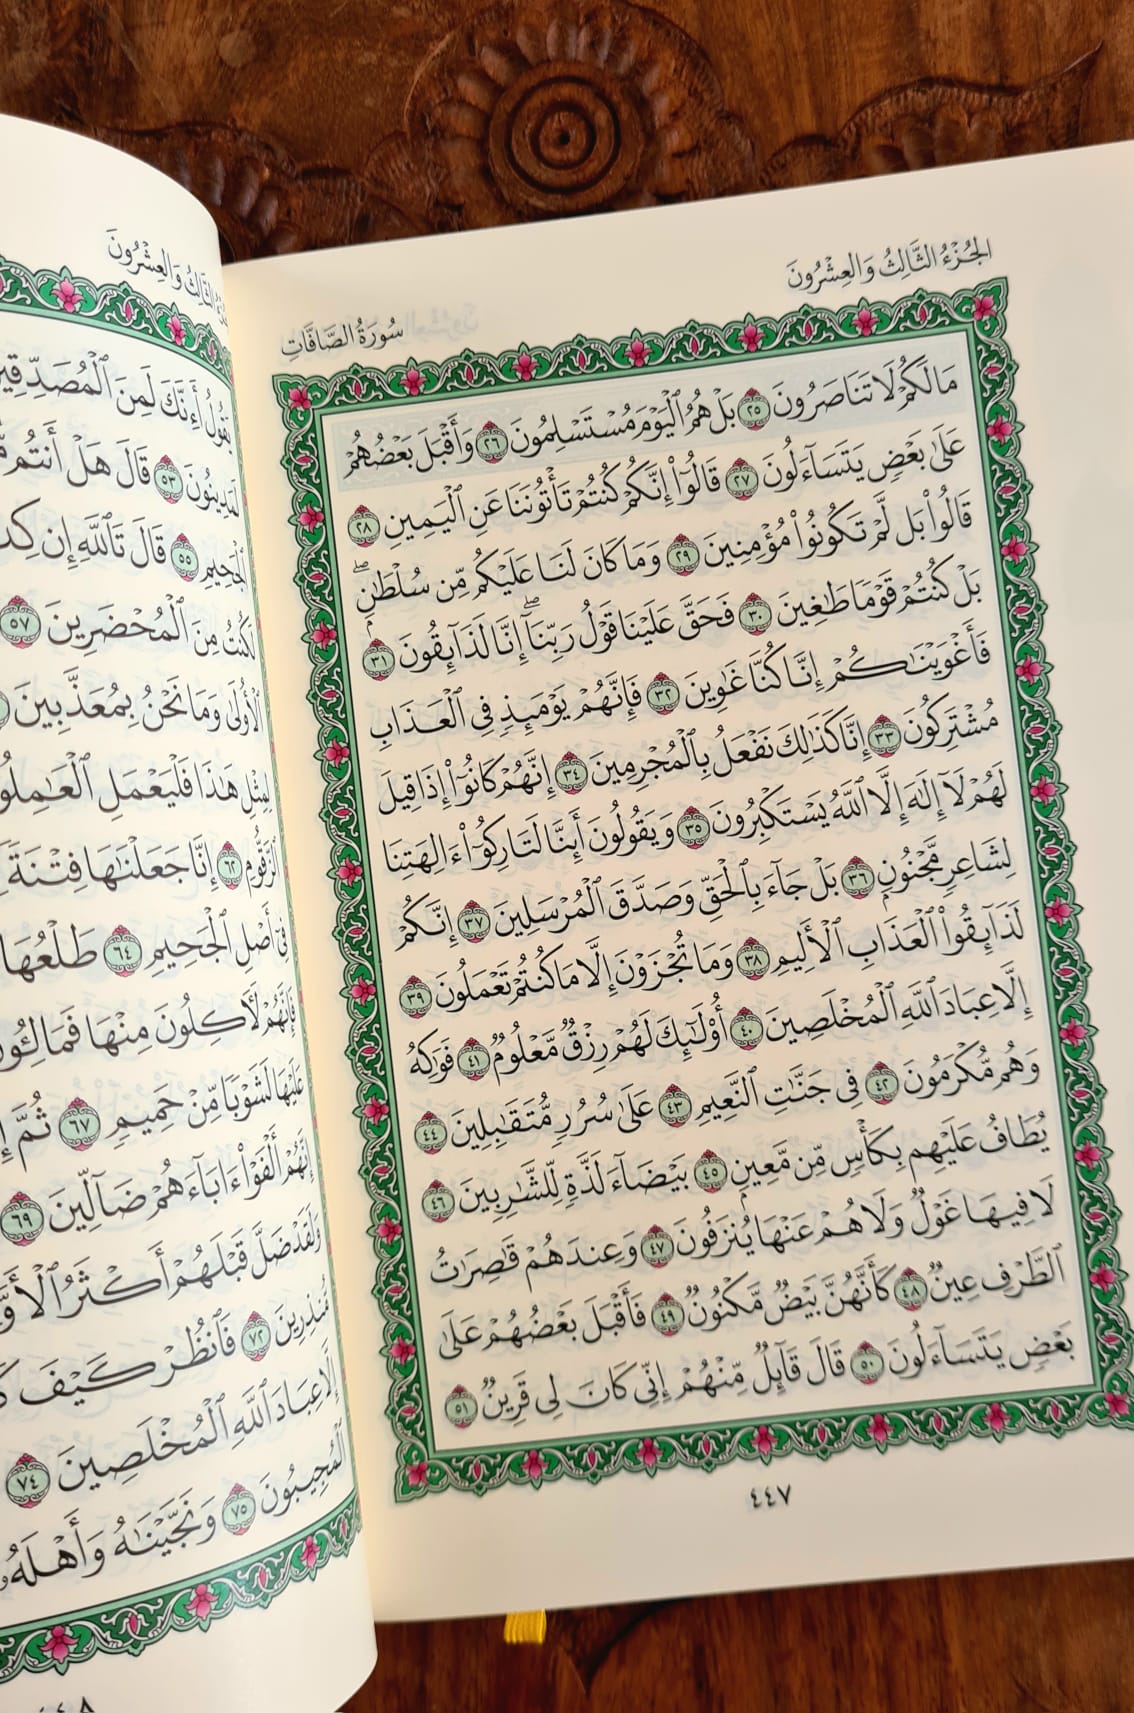 الجُزْءُ الثَّالِثُ وَالعِشْرُونَ
سُورَةُ الصَّافَّاتِ
مَا لَكُمْ لَا تَنَاصَرُونَ ٢٥ بَلْ هُمُ ٱلْيَوْمَ مُسْتَسْلِمُونَ ٢٦ وَأَقْبَلَ بَعْضُهُمْ
عَلَىٰ بَعْضٍ يَتَسَآءَلُونَ ٢٧ قَالُوٓا۟ إِنَّكُمْ كُنتُمْ تَأْتُونَنَا عَنِ ٱلْيَمِينِ ٢٨
قَالُوا۟ بَل لَّمْ تَكُونُوا۟ مُؤْمِنِينَ ٢٩ وَمَا كَانَ لَنَا عَلَيْكُم مِّن سُلْطَٰنٍۭ ۖ
بَلْ كُنتُمْ قَوْمًا طَٰغِينَ ٣٠ فَحَقَّ عَلَيْنَا قَوْلُ رَبِّنَآ ۖ إِنَّا لَذَآئِقُونَ ٣١
فَأَغْوَيْنَٰكُمْ إِنَّا كُنَّا غَٰوِينَ ٣٢ فَإِنَّهُمْ يَوْمَئِذٍ فِى ٱلْعَذَابِ
مُشْتَرِكُونَ ٣٣ إِنَّا كَذَٰلِكَ نَفْعَلُ بِٱلْمُجْرِمِينَ ٣٤ إِنَّهُمْ كَانُوٓا۟ إِذَا قِيلَ
لَهُمْ لَآ إِلَٰهَ إِلَّا ٱللَّهُ يَسْتَكْبِرُونَ ٣٥ وَيَقُولُونَ أَئِنَّا لَتَارِكُوٓا۟ ءَالِهَتِنَا
لِشَاعِرٍ مَّجْنُونٍۭ ٣٦ بَلْ جَآءَ بِٱلْحَقِّ وَصَدَّقَ ٱلْمُرْسَلِينَ ٣٧ إِنَّكُمْ
لَذَآئِقُوا۟ ٱلْعَذَابِ ٱلْأَلِيمِ ٣٨ وَمَا تُجْزَوْنَ إِلَّا مَا كُنتُمْ تَعْمَلُونَ ٣٩
إِلَّا عِبَادَ ٱللَّهِ ٱلْمُخْلَصِينَ ٤٠ أُو۟لَٰٓئِكَ لَهُمْ رِزْقٌ مَّعْلُومٌ ٤١ فَوَٰكِهُ
وَهُم مُّكْرَمُونَ ٤٢ فِى جَنَّٰتِ ٱلنَّعِيمِ ٤٣ عَلَىٰ سُرُرٍ مُّتَقَٰبِلِينَ ٤٤
يُطَافُ عَلَيْهِم بِكَأْسٍ مِّن مَّعِينٍۭ ٤٥ بَيْضَآءَ لَذَّةٍ لِّلشَّٰرِبِينَ ٤٦
لَا فِيهَا غَوْلٌ وَلَا هُمْ عَنْهَا يُنزَفُونَ ٤٧ وَعِندَهُمْ قَٰصِرَٰتُ
ٱلطَّرْفِ عِينٌ ٤٨ كَأَنَّهُنَّ بَيْضٌ مَّكْنُونٌ ٤٩ فَأَقْبَلَ بَعْضُهُمْ عَلَىٰ
بَعْضٍ يَتَسَآءَلُونَ ٥٠ قَالَ قَآئِلٌ مِّنْهُمْ إِنِّى كَانَ لِى قَرِينٌ ٥١
٤٤٧
الثَّالِثُ وَالعِشْرُونَ
يَقُولُ أَءِنَّكَ لَمِنَ ٱلْمُصَدِّقِينَ
لَمَدِينُونَ ٥٣ قَالَ هَلْ أَنتُم
ٱلْجَحِيمِ ٥٥ قَالَ تَٱللَّهِ إِن
لَكُنتُ مِنَ ٱلْمُحْضَرِينَ ٥٧
ٱلْأُولَىٰ وَمَا نَحْنُ بِمُعَذَّبِينَ
لِمِثْلِ هَٰذَا فَلْيَعْمَلِ
ٱلزَّقُّومِ ٦٢ إِنَّا جَعَلْنَٰهَا فِتْنَةً
فِىٓ أَصْلِ ٱلْجَحِيمِ ٦٤ طَلْعُهَا
فَإِنَّهُمْ لَءَاكِلُونَ مِنْهَا
عَلَيْهَا لَشَوْبًا مِّنْ حَمِيمٍ ٦٧ ثُمَّ
إِنَّهُمْ أَلْفَوْا۟ ءَابَآءَهُمْ ضَآلِّينَ ٦٩
وَلَقَدْ ضَلَّ قَبْلَهُمْ أَكْثَرُ
مُّنذِرِينَ ٧٢ فَٱنظُرْ كَيْفَ
إِلَّا عِبَادَ ٱللَّهِ ٱلْمُخْلَصِينَ ٧٤
ٱلْمُجِيبُونَ ٧٥ وَنَجَّيْنَٰهُ وَأَهْلَهُۥ